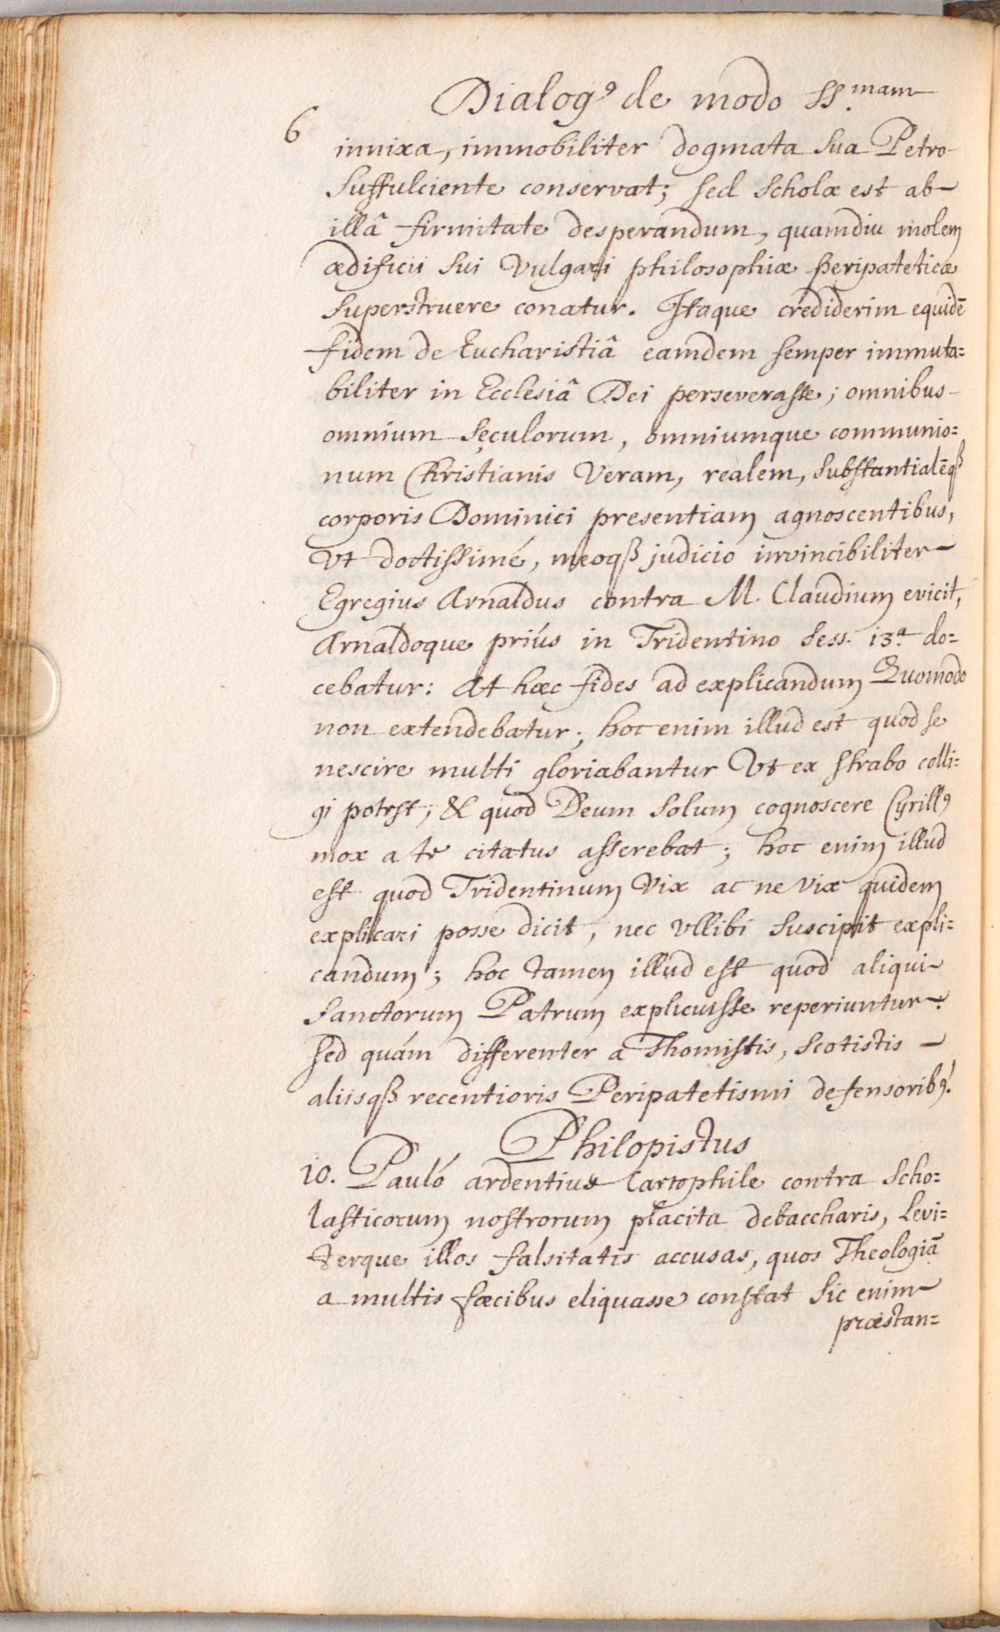 Dialogꝰ de modo SS.mam
6
innixa, immobiliter dogmata sua Petro
suffulciente conservat; sed scholæ est ab
illâ firmitate desperandum, quamdiu molem
ædificii sui vulgari philosophiæ peripateticæ
superstruere conatur. Itaque crediderim equidē
fidem de Eucharistiâ eamdem semper immuta=
biliter in Ecclesiâ Dei perseverasse; omnibus
omnium sęculorum, omniumque communio=
num Christianis veram, realem, substantialēqß
corporis Dominici presentiam agnoscentibus,
Vt doctissimé, meoqß judicio invincibiliter
Egregius Arnaldus contra M. Claudium evicit,
Arnaldoque priús in Tridentino sess. 13.a do=
cebatur: At hæc fides ad explicandum Quomodo
non extendebatur; hoc enim illud est quod se
nescire multi gloriabantur Vt ex strabo colli=
gi potest; & quod Deum solum cognoscere Cyrillꝰ
mox a te citatus asserebat; hoc enim illud
est quod Tridentinum Vix ac ne Vix quidem
explicari posse dicit, nec vllibi suscipit expli=
candum; hoc tamen illud est quod aliqui
sanctorum Patrum explicuisse reperiuntur.
sed quám differenter a Thomistis, Scotistis
aliisqß recentioris Peripatetismi defensoribꝰ!
Philopistus
10. Pauló ardentius Cartophile contra Scho=
lasticorum nostrorum placita debaccharis, levi=
terque illos falsitatis accusas, quos Theologiā
a multis fæcibus eliquasse constat sic enim
præstan=